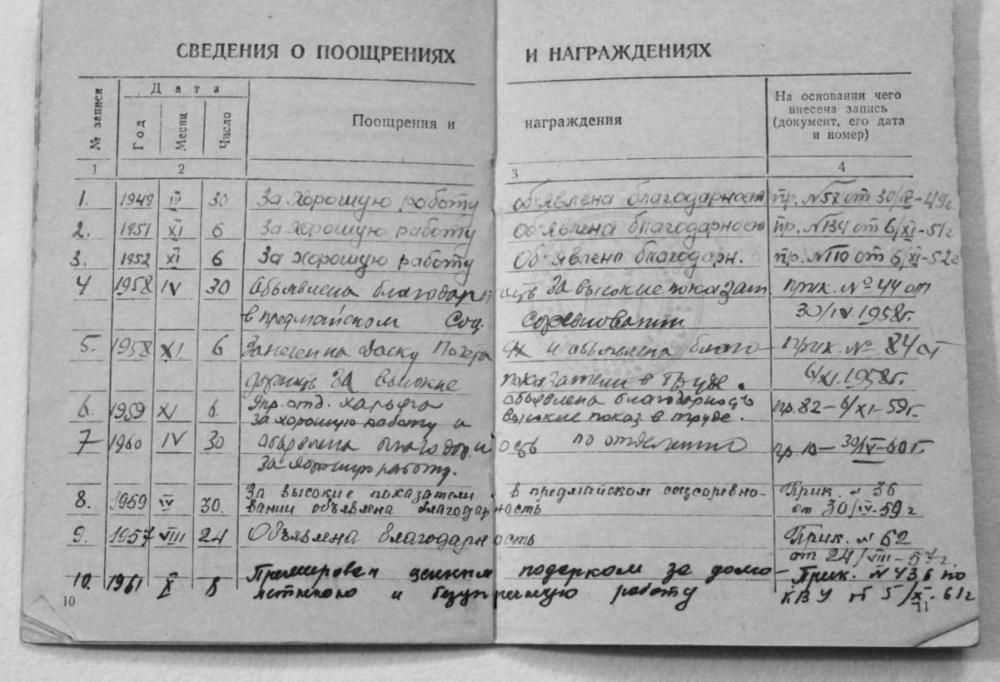 СВЕДЕНИЯ О ПООЩРЕНИЯХ И НАГРАЖДЕНИЯХ
№ записи
Дата
Год
Месяц
Число
Поощрения и награждения
На основании чего
внесена запись
(документ, его дата
и номер)
1 2 3 4
1. 1949 IV 30 За хорошую работу объявлена благодарност пр. №57 от 30/IV-49г.
2. 1951 XI 6 За хорошую работу объявлена благодарност пр. №134 от 6/XI-51г
3. 1952 XI 6 За хорошую работу Объявлена благодарн. пр. №110 от 6/XI-52г
4 1958 IV 30 Объявлена благодарность За высокие показат прик. № 44 от
в предмайском Соц. соревновании 30/IV 1958г.
5. 1958 XI 6 Занесен на Доску Почета и объявлена благо- прик. № 84 от
дарность За высокие показатели в Труде. 6/XI.1958г.
6. 1959 XI 6. Упр. отд. объявлена благодарность пр.82-6/XI-59г.
за хорошую работу и высокие показ в труде.
7 1960 IV 30 Объявлена благодарность по отделению пр 10-30/IV-60г.
За хорошую работу.
8. 1959 IV 30. За высокие показатели в предмайском соцсоревно- Прик. № 36
вании объявлена благодарность от 30/IV-59г
9. 1957 VIII 24 Объявлена благодарность Прик. № 62
от 24/VIII-57г.
10. 1961 X Премирован ценным подарком за Прик. № 436 по
и безупречную работу 5/XI-61г
10